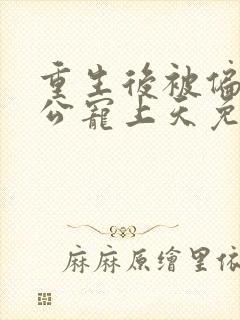 重生後被偏
公寵上天免
麻麻原繪里依